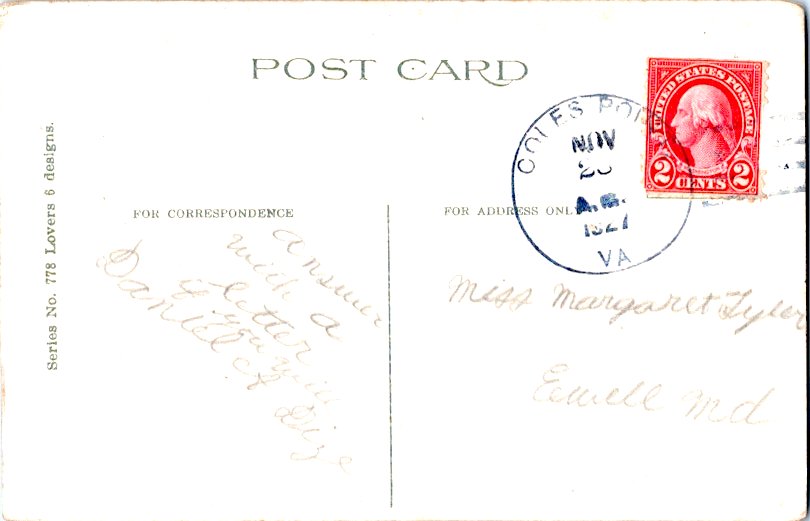 POST CARD
COLES POINT
NOV
A.M.
1927
VA
UNITED STATES POSTAGE
2 CENTS 2
FOR CORRESPONDENCE
FOR ADDRESS ONLY
Series No. 778 Lovers 6 designs.
answer
with a
letter
if you will
Daniel
Miss Margaret Tyler
Ewell Md